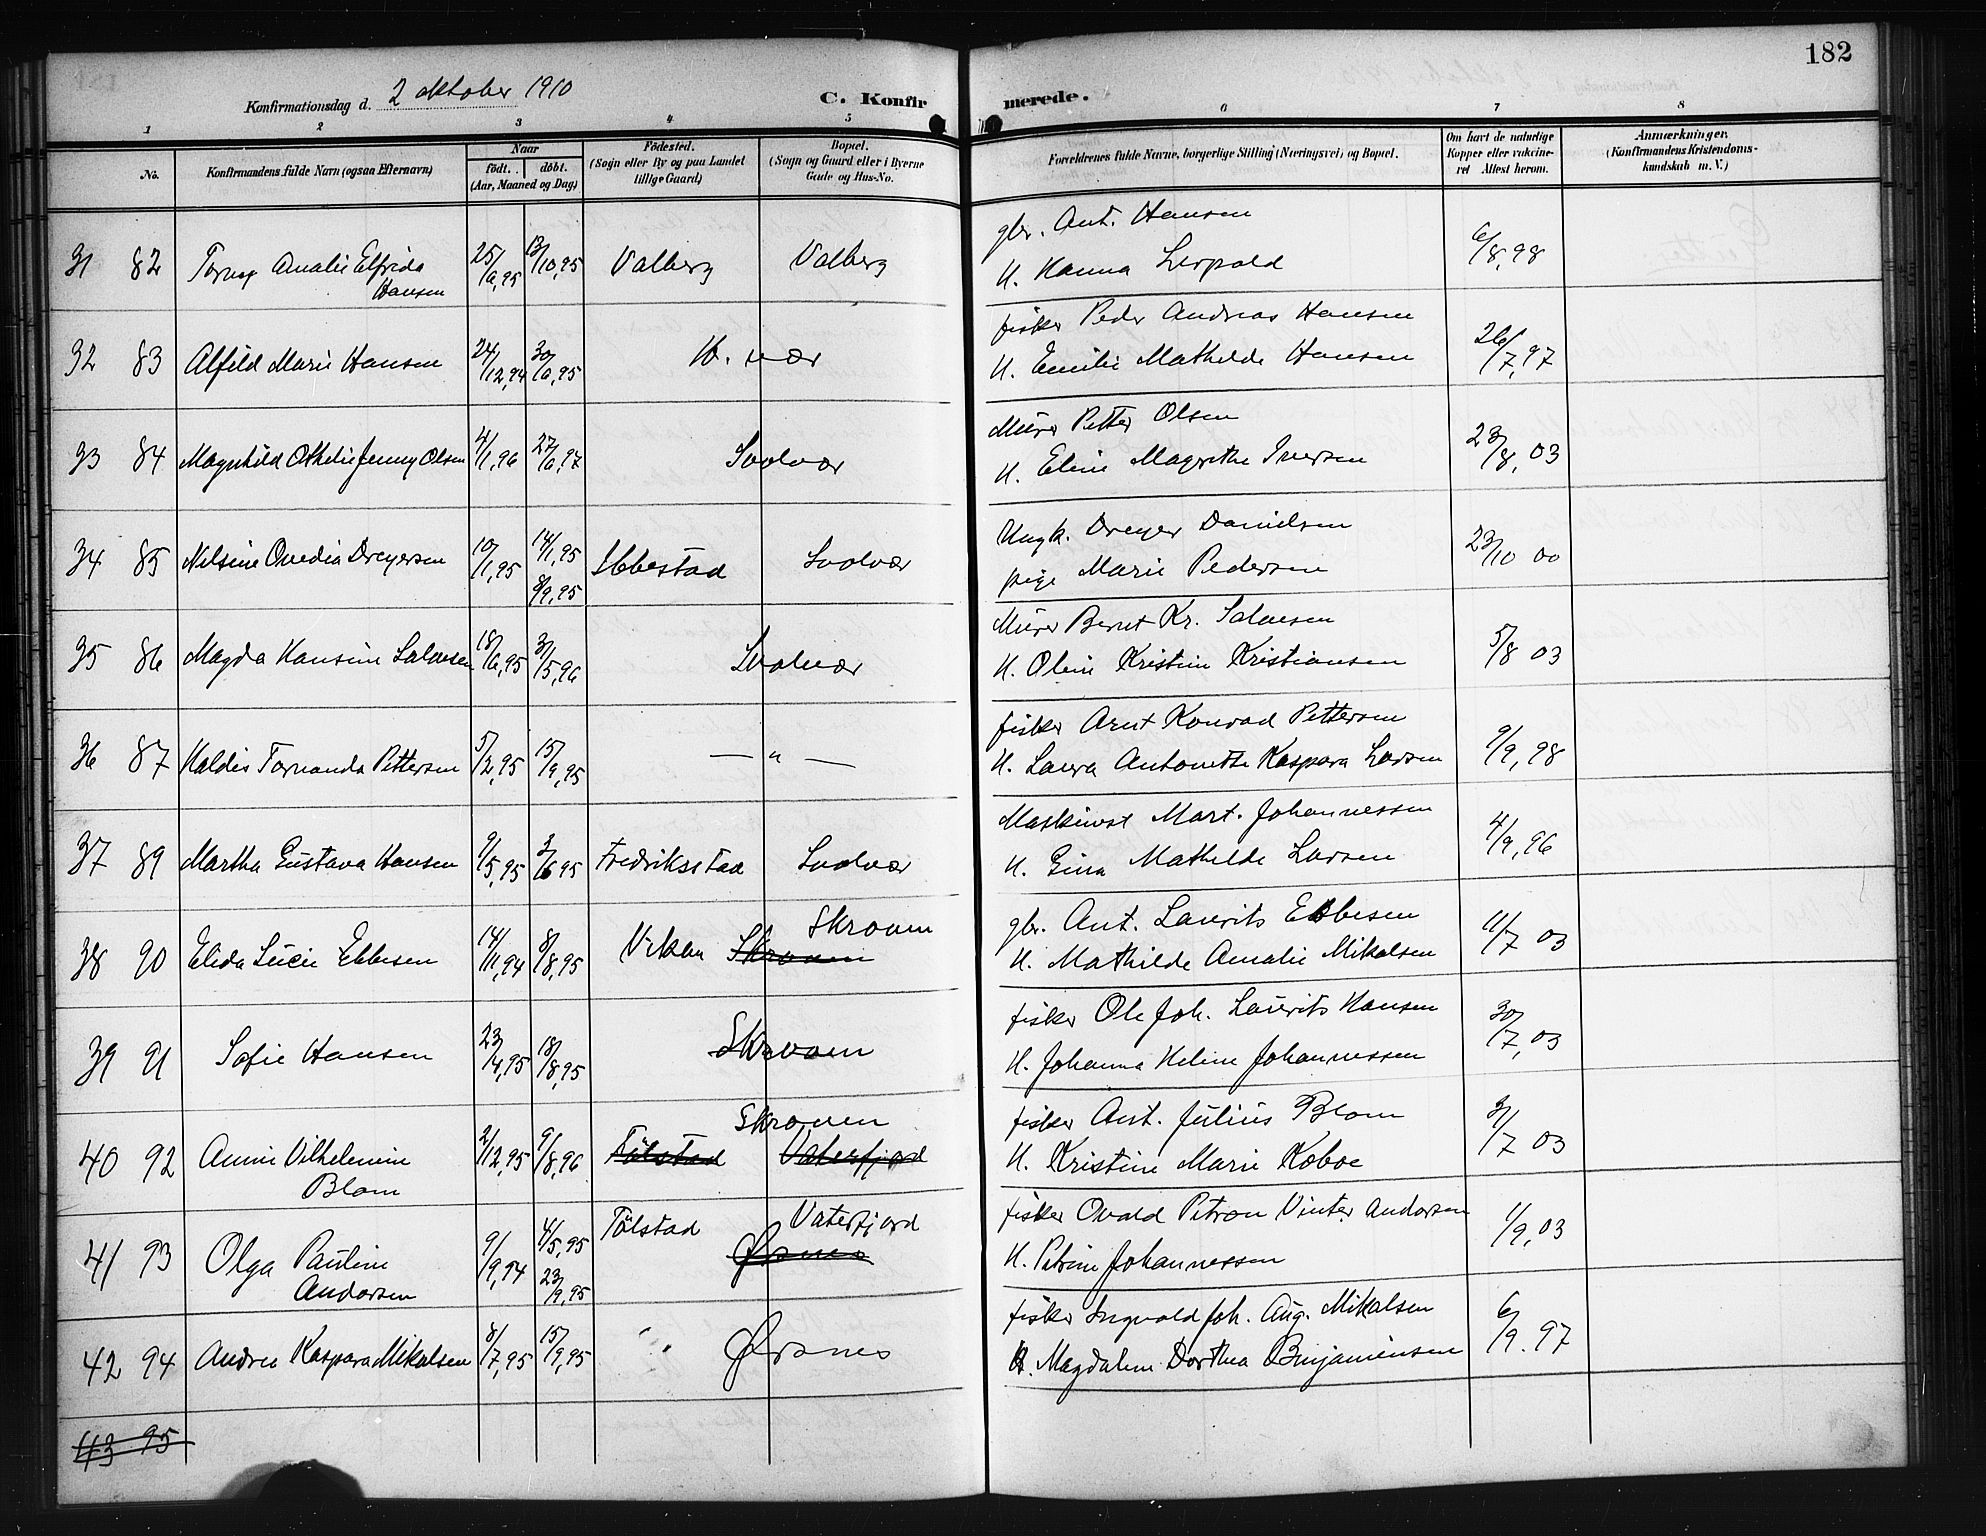 182
Konfirmationsdag d. 2 oktober 1910
C. Konfirmerede.
1 2 3 4 5 6 7 8
No.
Konfirmandens fulde Navn (ogsaa Efternavn)
Naar
født. døbt.
(Aar, Maaned og Dag)
Fødested.
(Sogn eller By og paa Landet
tillige Gaard)
Bopæl.
(Sogn og Gaard eller i Byerne
Gade og Hus-No.
Forældrenes fulde Navne, borgerlige Stilling (Næringsvei) og Bopæl.
Om havt de naturlige
Kopper eller vaccine-
ret Attest herom.
Anmærkninger.
(Konfirmandens Kristendoms-
kundskab m. V.)
31 82 Torny Amalie Elfrida 25/6,95 13/10,95 Valberg Valberg
Hansen
gbr. Ant. Hansen
H. Hanna Lerpold
6/8,98
32 83 Alfild Marie Hansen 24/12,94 30/6,95 H. vær
fisker Peder Andreas Hansen
H. Emilie Mathilde Hansen
26/7,97
33 84 Magnhild Othelie Jenny Olsen 4/1,96 27/6,97 Svolvær
Mürer Petter Olsen
H. Eline Magrethe Iversen
23/8,03
34 85 Nilsine Ovedia Dreyersen 10/1,95 14/1,95 Ibbestad Svolvær
8/9,95
Ungk. Dreyer Danielsen
pige Marie Pedersen
23/10 00
35 86 Magda Hansine Salvesen 18/6,95 3/5,96 Svolvær
Mürer Bernt Kr. Salvesen
H. Oline Kristine Kristiansen
5/8 03
36 87 Haldis Tornanda Pettersen 5/2,95 15/9,95 — " —
fisker Arnt Konrad Pettersen
H. Laura Antonette Kaspara Larsen
9/9,98
37 89 Martha Gustava Hansen 9/5,95 3/6 95 Fredriksstad Svolvær
Maskinist Mart. Johannessen
H. Gina Mathilde Larsen
4/9,96
Skroven
38 90 Elida Lucie Ebbesen 14/11,94 8/8,95 Vikan Skroven
gbr. Ant. Laurits Ebbesen
H. Mathilde Amalie Mikalsen
11/7 03
39 91 Sofie Hansen 23/4,95 18/8,95 Skroven
fisker Ole Joh. Laurits Hansen
H. Johanna Heline Johannessen
30/7,03
Skroven
40 92 Annie Vilhelmine 2/12,95 9/8,96 Tölstad Vaterfjord
Blom
fisker Ant. Julius Blom
H. Kristine Marie Koboe
3/7 03
Tölstad Vaterfjord
41 93 Olga Pauline 9/9,94 4/5,95 Ørsnes
Andorsen 23/9,95
fisker Ovald Petron Vinter Andorsen
H. Petrine Johannessen
1/9,03
42 94 Andrea Kaspara Mikalsen 8/7,95 15/9,95 " Ørsnes
fisker Ingvald Joh. Aug. Mikalsen
H. Magdalene Dorthea Benjaminsen
6/9.97
43 95